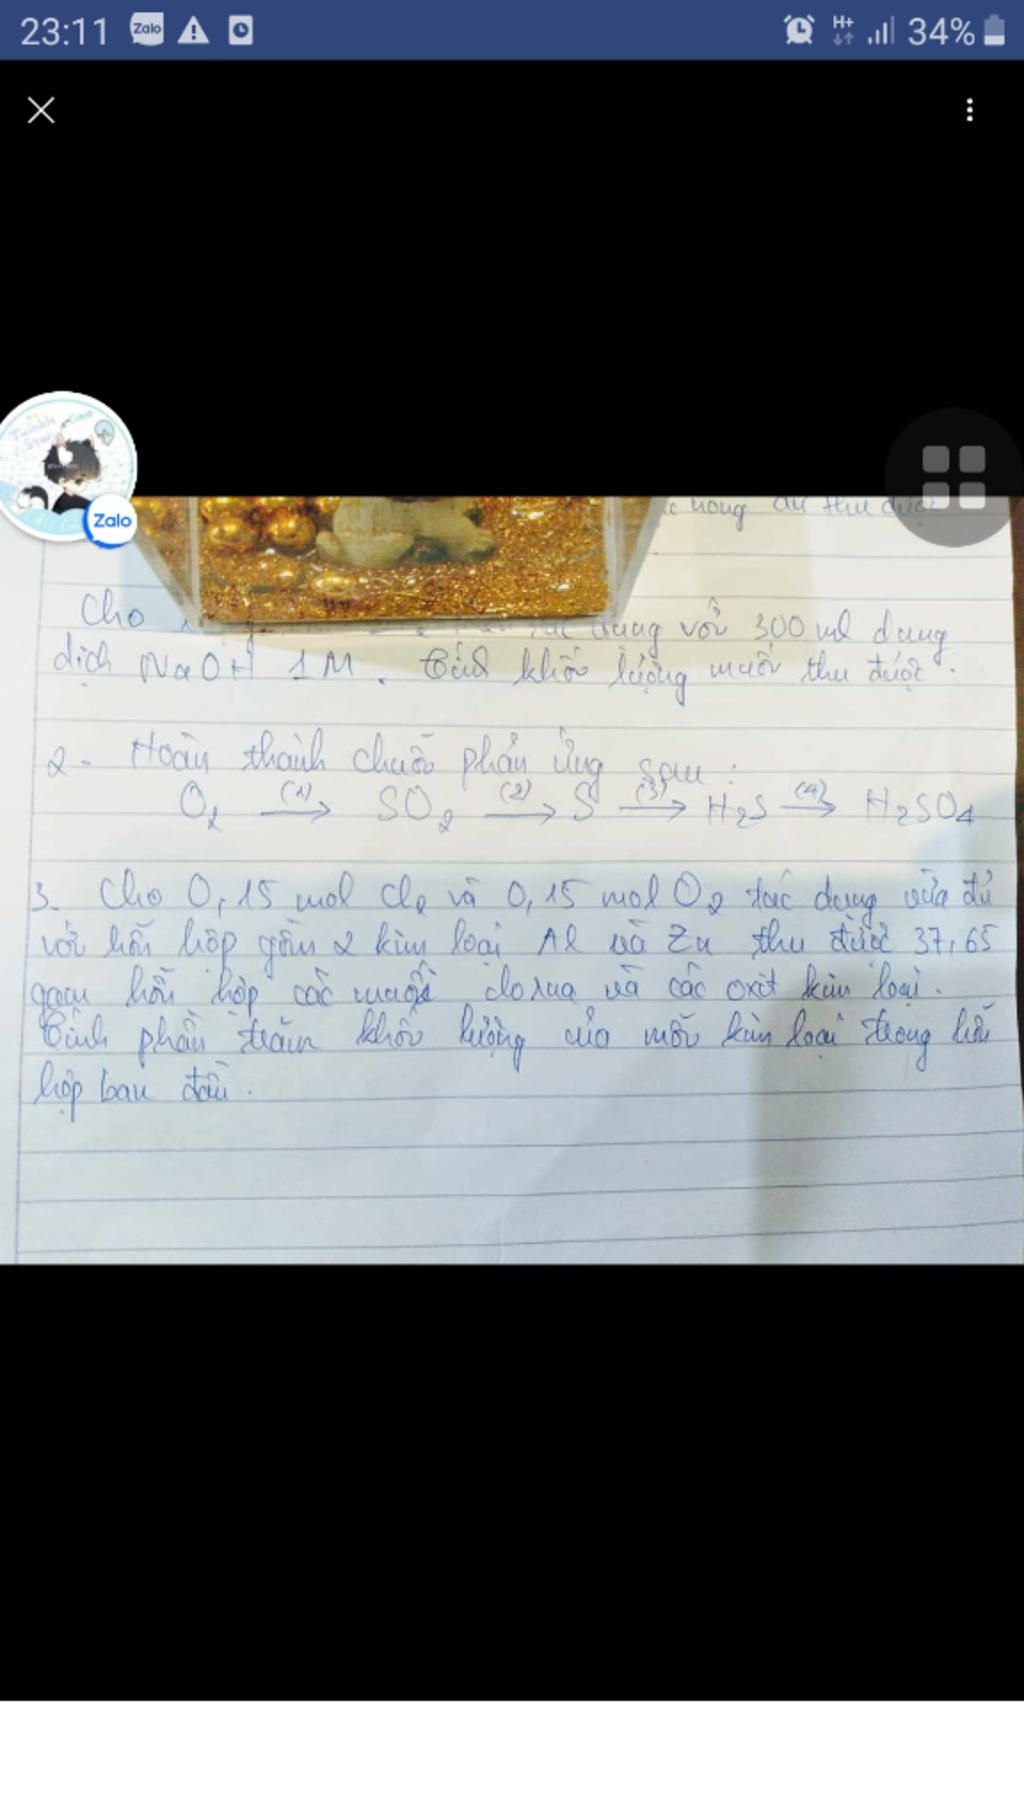 23:11 Zalo H+ 34%
Zalo
dư thu được
Cho tác dụng với 300 ml dung
dịch NaOH 1M. Tính khối lượng muối thu được.
2- Hoàn thành chuỗi phản ứng sau:
O2 (1)→ SO2 (2)→ S (3)→ H2S (4)→ H2SO4
3. Cho 0,15 mol Cl2 và 0,15 mol O2 tác dụng vừa đủ
với hỗn hợp gồm 2 kim loại Al và Zn thu được 37,65
gam hỗn hợp các muối clorua và các oxit kim loại.
Tính phần trăm khối lượng của mỗi kim loại trong hỗn
hợp ban đầu.